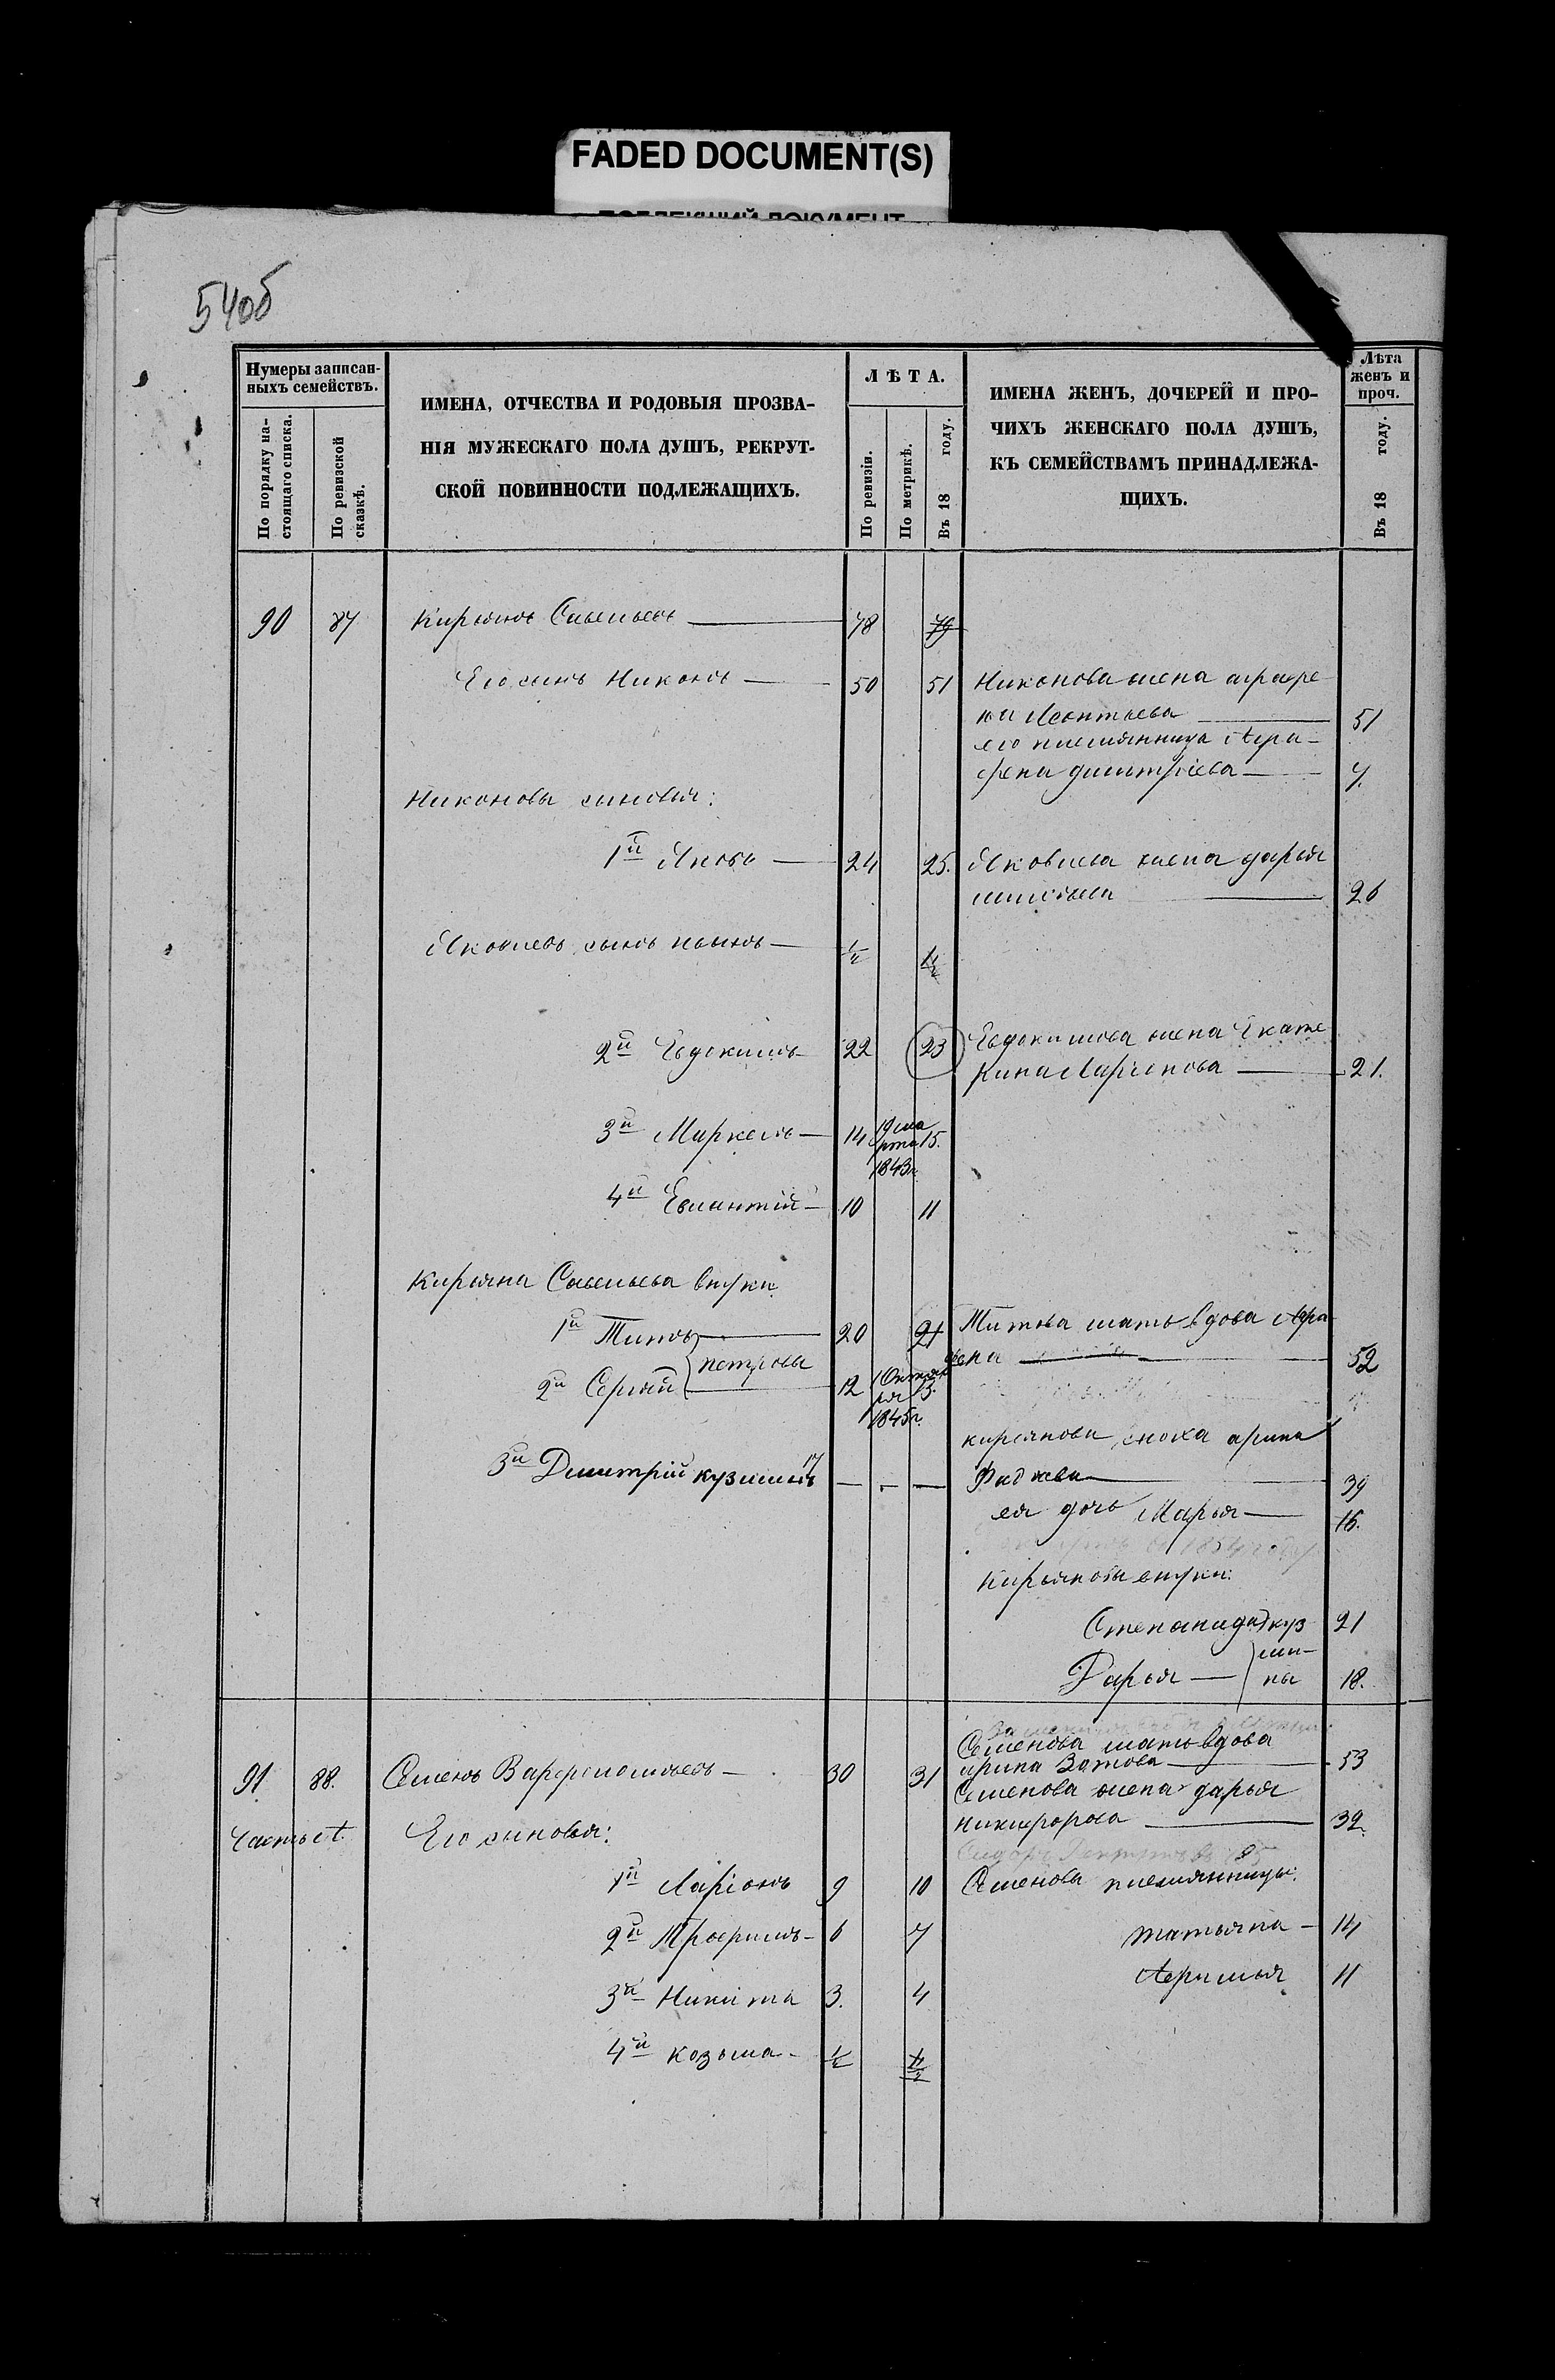 FADED DOCUMENT(S)
540б
Нумеры записан-
ныхъ семействъ.
По порядку на-
стоящаго списка.
По ревизской
сказкѣ.
ИМЕНА, ОТЧЕСТВА И РОДОВЫЯ ПРОЗВА-
НІЯ МУЖЕСКАГО ПОЛА ДУШЪ, РЕКРУТ-
СКОЙ ПОВИННОСТИ ПОДЛЕЖАЩИХЪ.
ЛѢТА.
По ревизіи.
По метрикѣ.
Въ 18 году.
ИМЕНА ЖЕНЪ, ДОЧЕРЕЙ И ПРО-
ЧИХЪ ЖЕНСКАГО ПОЛА ДУШЪ,
КЪ СЕМЕЙСТВАМЪ ПРИНАДЛЕЖА-
ЩИХЪ.
Лѣта
женъ и
проч.
Въ 18 году.
90 87 Кирьянъ Савельевъ 78 79
Его сынъ Никонъ 50 51 Никонова жена аграфе-
на Леонтьева 51
его племянница Агра-
фена дмитріева 7.
Никоновы сыновья:
1й Яковъ 24 25. Яковлева жена дарья
26
Яковлевъ сынъ 1/2
2й Евдокимъ 22 23 Евдокимова жена Екате
рина Ларіонова 21.
3й Маркелъ 14 19 ма
рта 15.
1843г.
4й Евлантій 10 11
Кирьяна Савельева внуки
1й Титъ 20 21 Титова мать вдова Агра
фена 52
петровы
2й Сергѣй 12 1 Октяб
ря 13.
1845г.
кирьянова сноха арина
3й Дмитрій кузминъ 39
ея дочь Марья 16.
Кирьяновы внуки:
Степанида куз 21
ми-
Дарья ны 18.
91. 88. Семенъ Варфоломеевъ 30 31
Семенова мать вдова
арина Зотова 53
Семенова жена дарья
никифорова 32.
Его сыновья:
1й Ларіонъ 9 10 Семеновы племянницы:
2й Трофимъ 6 7 татьяна 14
3й Никита 3. 4 Афимья 11
4й козьма 1/2